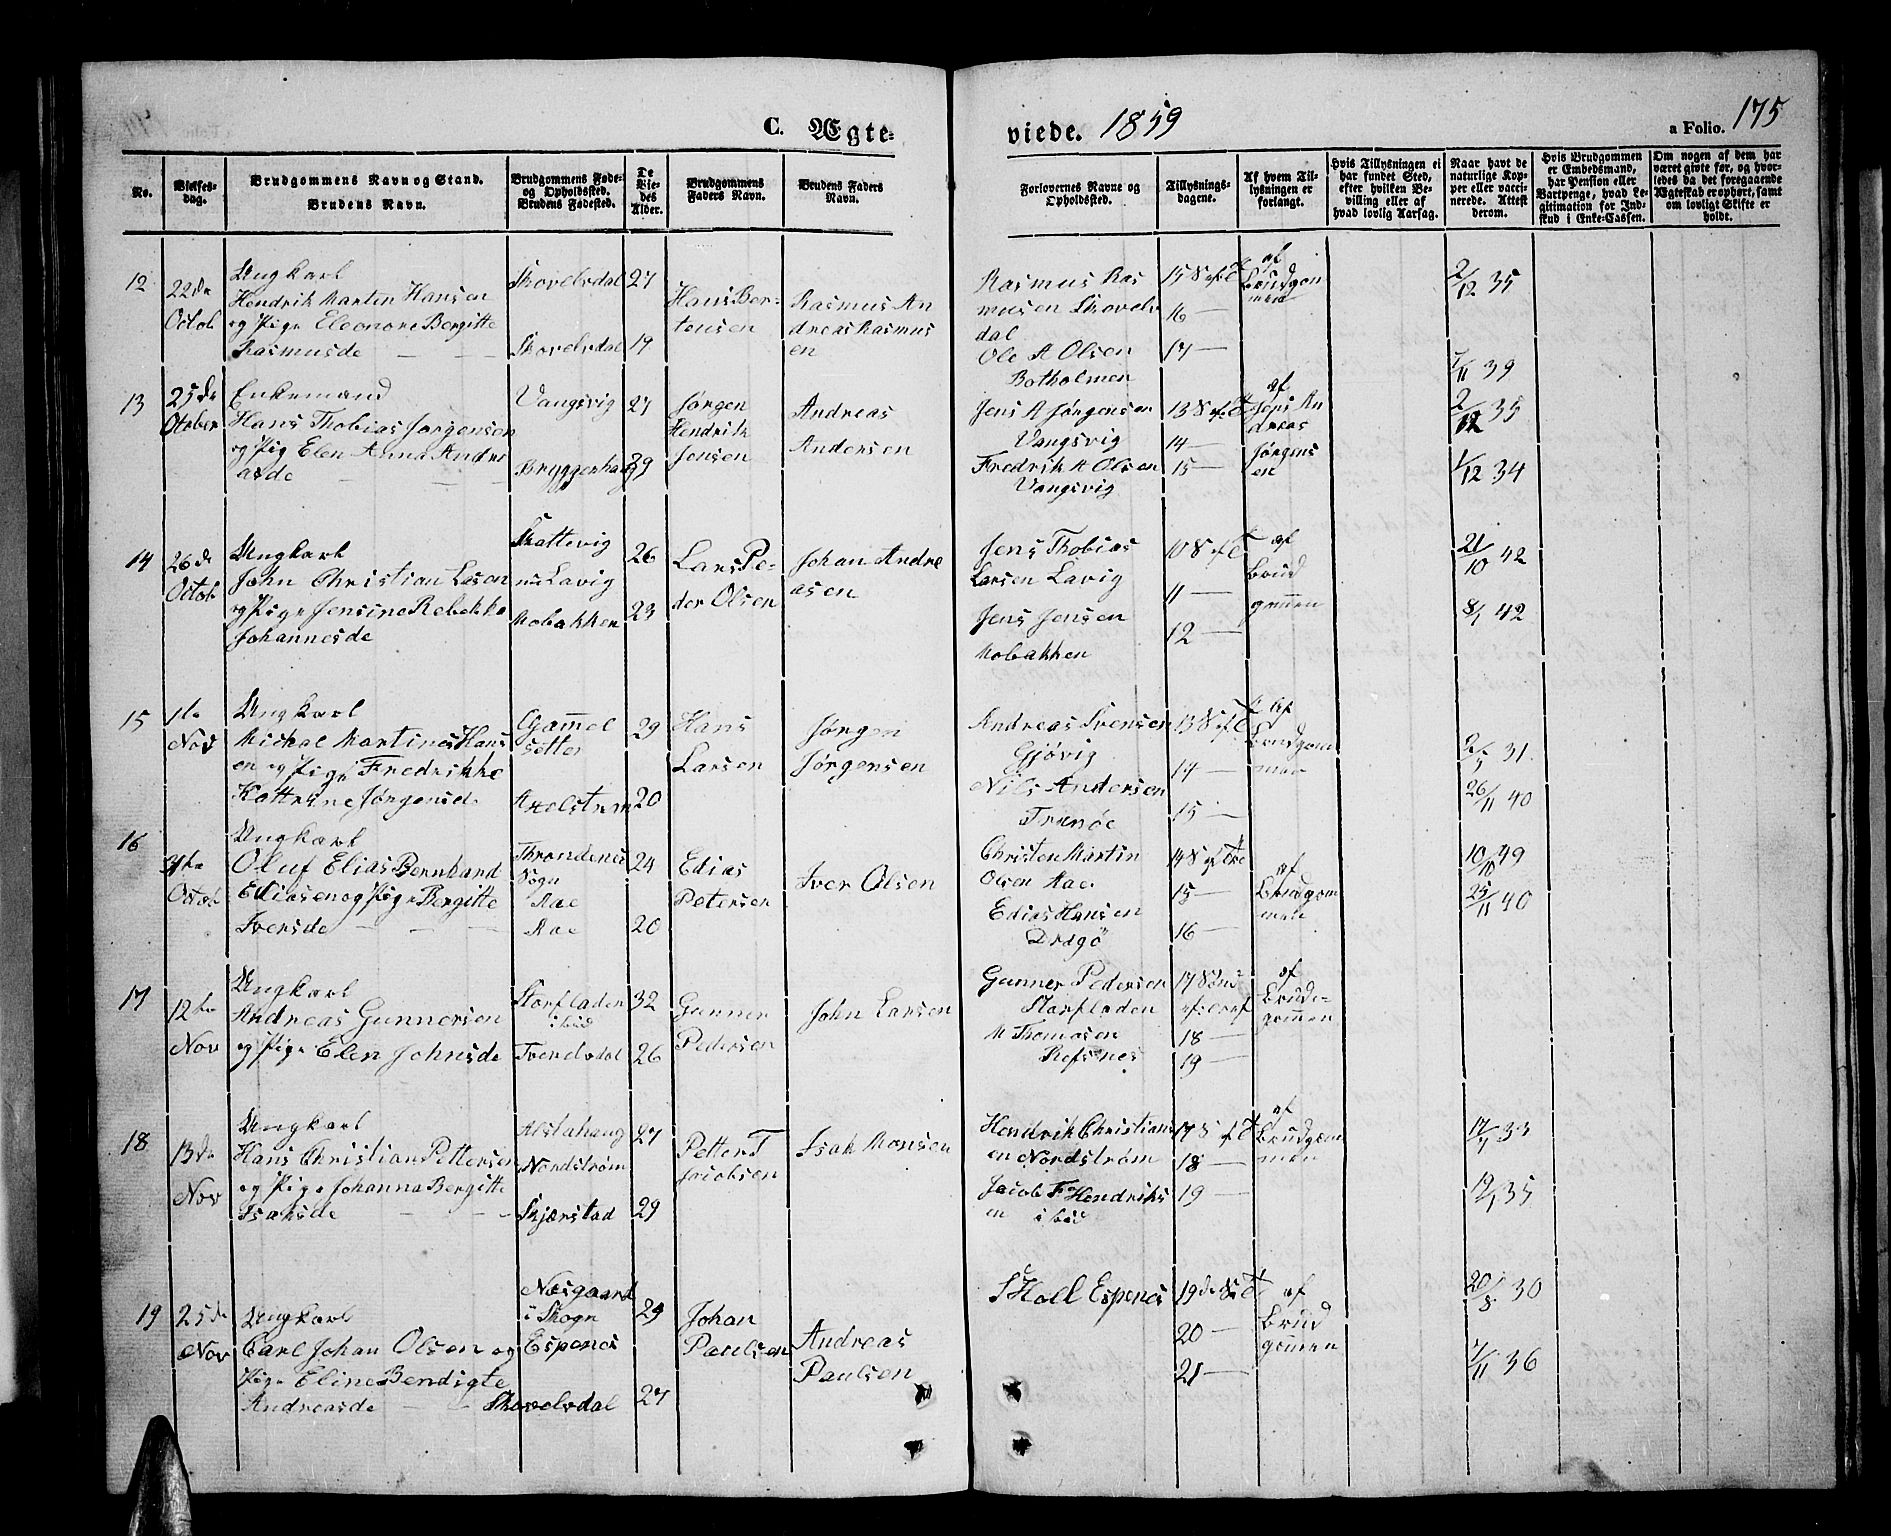 C. Ægte-
viede. 1859
a Folio. 175
No.
Vielses-
dag.
Brudgommens Navn og Stand.
Brudens Navn.
Brudgommens Føde-
og Opholdssted.
Brudens Fødested.
De
Vie-
des
Alder.
Brudgommens
Faders Navn.
Brudens Faders
Navn.
Forlovernes Navne og
Opholdssted.
Tillysnings-
dagene.
Af hvem Til-
lysningen er
forlangt.
Hvis Tillysningen ei
har fundet Sted,
efter hvilken Be-
villing eller af
hvad lovlig Aarsag.
Naar havt de
naturlige Kop-
per eller vacci-
nerede. Attest
derom.
Hvis Brudgommen
er Embedsmand,
har Pension eller
Vartpenge, hvad Le-
gitimation for Ind-
skud i Enke-Cassen.
Om nogen af dem har
været givte før, og hvor-
ledes da det foregaaende
Ægteskab er ophørt, samt
om lovligt Skifte er
holdt.
12
22de
Octob
Ungkarl
Hendrik Morten Hansen
og Pige Eleonore Bergitte
Rasmusde
Skovelvdal
Skovelvdal
27
19
Hans Ber-
tensen
Rasmus An
dreas Rasmus
en
Rasmus Ras
musen Skovelv
dal
Ole A Olsen
Botholmen
15 S ef T
16 —
17 —
af
Brudgom
men
2/12 35
7/11 39
13
25de
Otober
Enkemand
Hans Thobias Jørgensen
og Pig Elen Anna Andre
asde
Vangsvig
Bryggenhaug
27
39
Jørgen
Hendrik
Jensen
Andreas
Andersen
Jens A Jørgensen
Vangsvig
Fredrik A Olsen
Vangsvig
13 S ef T
14 —
15 —
af
Jens An
dreas
Jørgens
en
2/12 35
1/12 34
14
26de
Octob
Ungkarl
John Christian Lasen
og Pige Jensine Rebekka
Johannesde
Skattevig
nu Lavig
Mobakken
26
23
Lars Pe-
der Olsen
Johan Andre
asen
Jens Thobias
Larsen Lavig
Jens Jensen
Mobakken
10 S ef T
11 —
12 —
af
Brud
gommen
21/10 42
8/1 42
15
1te
Nov
Ungkarl
Mickal Martines Hans
en og Pige Fredrikke
Kattrine Jørgensd
Gammel
setter
29
20
Hans
Larsen
Jørgen
Jørgensen
Andreas Svensen
Gjøvig
Nils Andersen
Tranøe
13 S ef T
14 —
15 —
af
Brudgom
men
31
26/11 40
16
31te
Octob
Ungkarl
Oluf Elias Bernhard
Ediasen og Pige Bergitte
Iversde
Throndenes
Sogn
Aae
Aae
24
20
Edias
Petersen
Iver Olsen
Christen Martin
Olsen Aae
Edias Hansen
Dragö
14 S ef Tre
15 —
16 —
af
Brudgom
men
10/10 49
25/11 40
17
12te
Nov
Ungkarl
Andreas Gunnersen
og Pige Elen Johnsde
Storfladen
ibid
Tverelvdal
32
26
Gunner
Pedersen
John Larsen
Gunner Pedersen
Storfladen
M Thomasen
Refsnes
17 Sönd
18 —
19 —
af
Brude-
gommen
18
13de
Nov
Ungkarl
Hans Christian Pettersen
og Pige Johanna Bergitte
Isaksde
Alstahaug
Nordstrøm
Skjærstad
27
29
Petter T
Jacobsen
Isak Monsen
Hendrik Christians
en Nordstrøm
Jacob F Hendriks
en ibid
17 S ef T
18 —
19 —
af
Brudgom
men
17/7 33
12/1 35
19
25de
Nov
Ungkarl
Carl Johan Olsen og
Pige Eline Bendigte
Andreasde
Næsgaard
i Skogn
Espenes
Skovelvdal
29
27
Johan
Paulsen
Andreas
Paulsen
S Holl Espenes
19de S e T
20 —
21 —
af
Brud
gommen
20/8 30
7/11 36